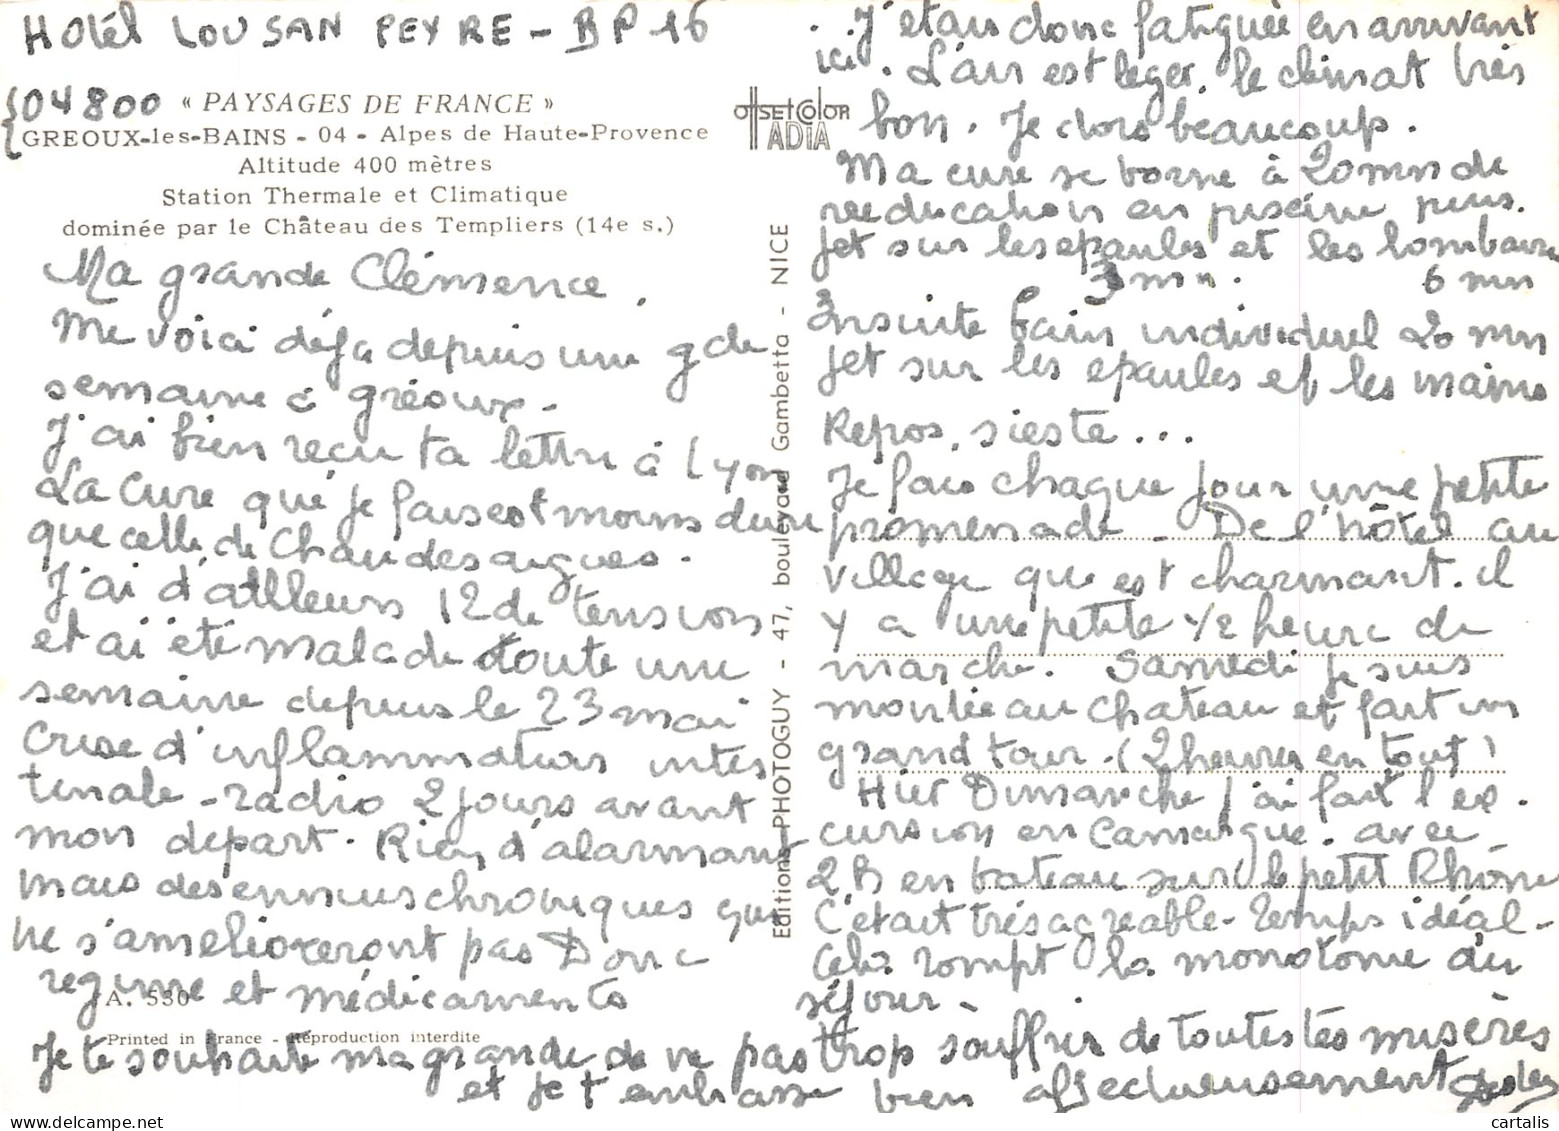 Hotel LOU SAN PEYRE - BP 16
04800 « PAYSAGES DE FRANCE »
GREOUX-les-BAINS - 04 - Alpes de Haute-Provence
Altitude 400 mètres
Station Thermale et Climatique
dominée par le Château des Templiers (14e s.)
Ma grande Clémence,
Me voici déja depuis une g de
semaine à gréoux.
J'ai bien reçu ta lettre à Lyon
La cure que je fais est moins dure
que celle de Chaudesaigues.
J'ai d'ailleurs 12 de tension
et ai été malade toute une
semaine depuis le 23 mai
Crise d'inflammation intes
tinale - radio 2 jours avant
mon départ. Rien d'alarmant
mais des ennuis chroniques qui
ne s'amelioreront pas Donc
regime et médicaments
A. 530
Printed in France - Réproduction interdite
Editions PHOTOGUY - 47, boulevard Gambetta - NICE
OffSEt COLOR
ADIA
J'étais donc fatiguée en arrivant
ici. L'air est leger, le climat très
bon. Je dors beaucoup.
Ma cure se borne à 20 mn de
reeducation en piscine puis.
jet sur les epaules et les lombaires
3 mn. 6 mn
Ensuite bain individuel 20 mn
jet sur les epaules et les mains
Repos, sieste...
Je fais chaque jour une petite
promenade - De l'hôtel au
village qui est charmant. il
y a une petite 1/2 heure de
marche. Samedi je suis
montée au chateau et fait un
grand tour. (2 heures en tout)
Hier Dimanche j'ai fait l'ex.
cursion en Camargue. avec
2 h en bateau sur le petit Rhône
C'était très agréable - Temps idéal -
Cela rompt la monotonie du
séjour -
Je te souhaite ma grande de ne pas trop souffrir de toutes tes misères
et je t'embrasse bien affectueusement
cartalis